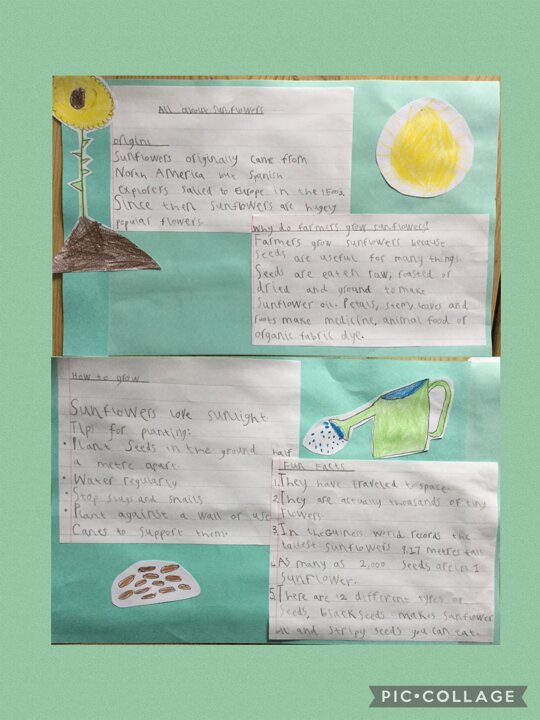 All about sunflowers
origins
Sunflowers originally came from
North America but Spanish
explorers sailed to Europe in the 1500s.
Since then sunflowers are hugely
popular flowers
Why do farmers grow sunflowers?
Farmers grow sunflowers because
seeds are useful for many things.
Seeds are eaten raw, roasted or
dried and ground to make
sunflower oil. Petals, stems, leaves and
roots make medicine, animal food or
organic fabric dye.
How to grow
Sunflowers love sunlight
Tips for planting:
• Plant seeds in the ground half
a metre apart.
• Water regularly
• Stop slugs and snails
• Plant against a wall or use
Canes to support them.
Fun Facts
1. They have traveled to space
2. They are actually thousands of tiny
flowers.
3. In the Guiness world records the
tallest sunflowers 9.17 metres tall
4. As many as 2,000 seeds are in 1
sunflower.
5. There are 2 different types of
seeds, black seeds makes sunflower
oil and stripy seeds you can eat.
PIC•COLLAGE